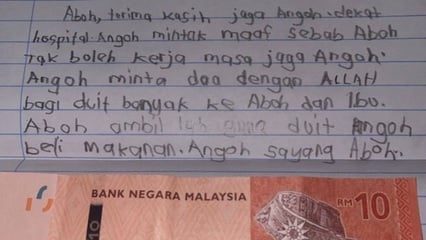 Aboh, terima kasih jaga Angoh. dekat
hospital. Angoh mintak maaf sebab Aboh
tak boleh kerja masa jaga Angoh.
Angoh minta doa dengan ALLAH
bagi duit banyak ke Aboh dan Ibu.
Aboh ambil lah guna duit Angoh
beli makanan. Angoh sayang Aboh.
BANK NEGARA MALAYSIA
RM10
10